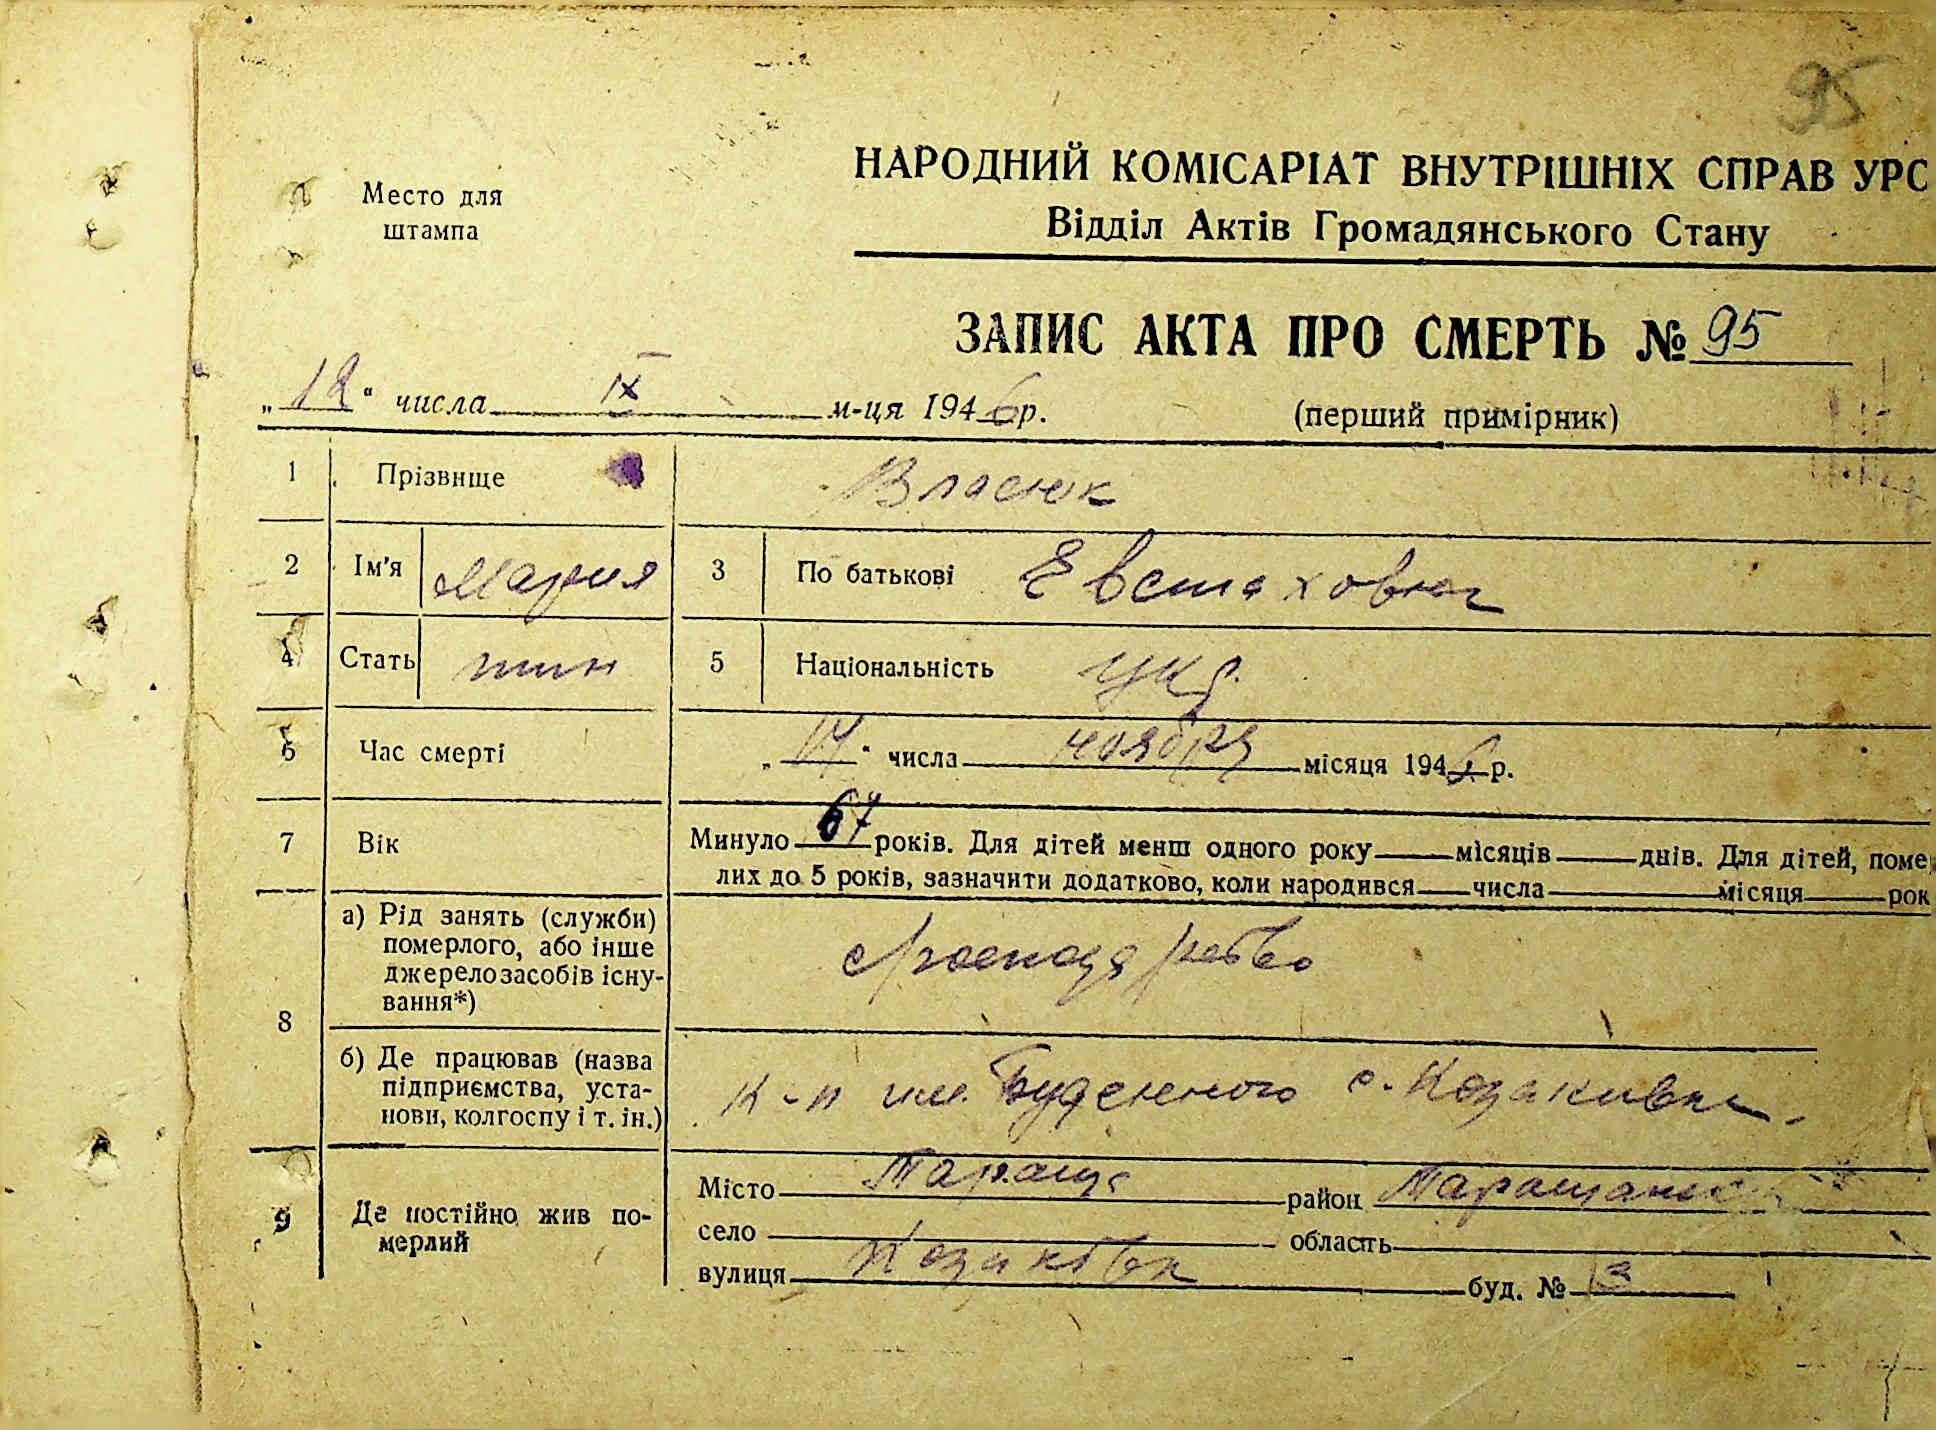 95
Место для
штампа
НАРОДНИЙ КОМІСАРІАТ ВНУТРІШНІХ СПРАВ УРС
Відділ Актів Громадянського Стану
ЗАПИС АКТА ПРО СМЕРТЬ № 95
„12“ числа IX м-ця 1946 р.
(перший примірник)
1 Прізвище Власюк
2 Ім'я Мария 3 По батькові Евстаховна
4 Стать жин 5 Національність укр.
6 Час смерті „17“ числа ноября місяця 1946 р.
7 Вік Минуло 67 років. Для дітей менш одного року місяців днів. Для дітей, поме
лих до 5 років, зазначити додатково, коли народився числа місяця рок
8 а) Рід занять (служби)
померлого, або інше
джерело засобів існу-
вання*)
б) Де працював (назва
підприємства, уста-
нови, колгоспу і т. ін.)
к-п им. Буденного с. Козакивка
9 Де постійно жив по-
мерлий
Місто Тараща район Таращанск
село область
вулиця Козаківк буд. №